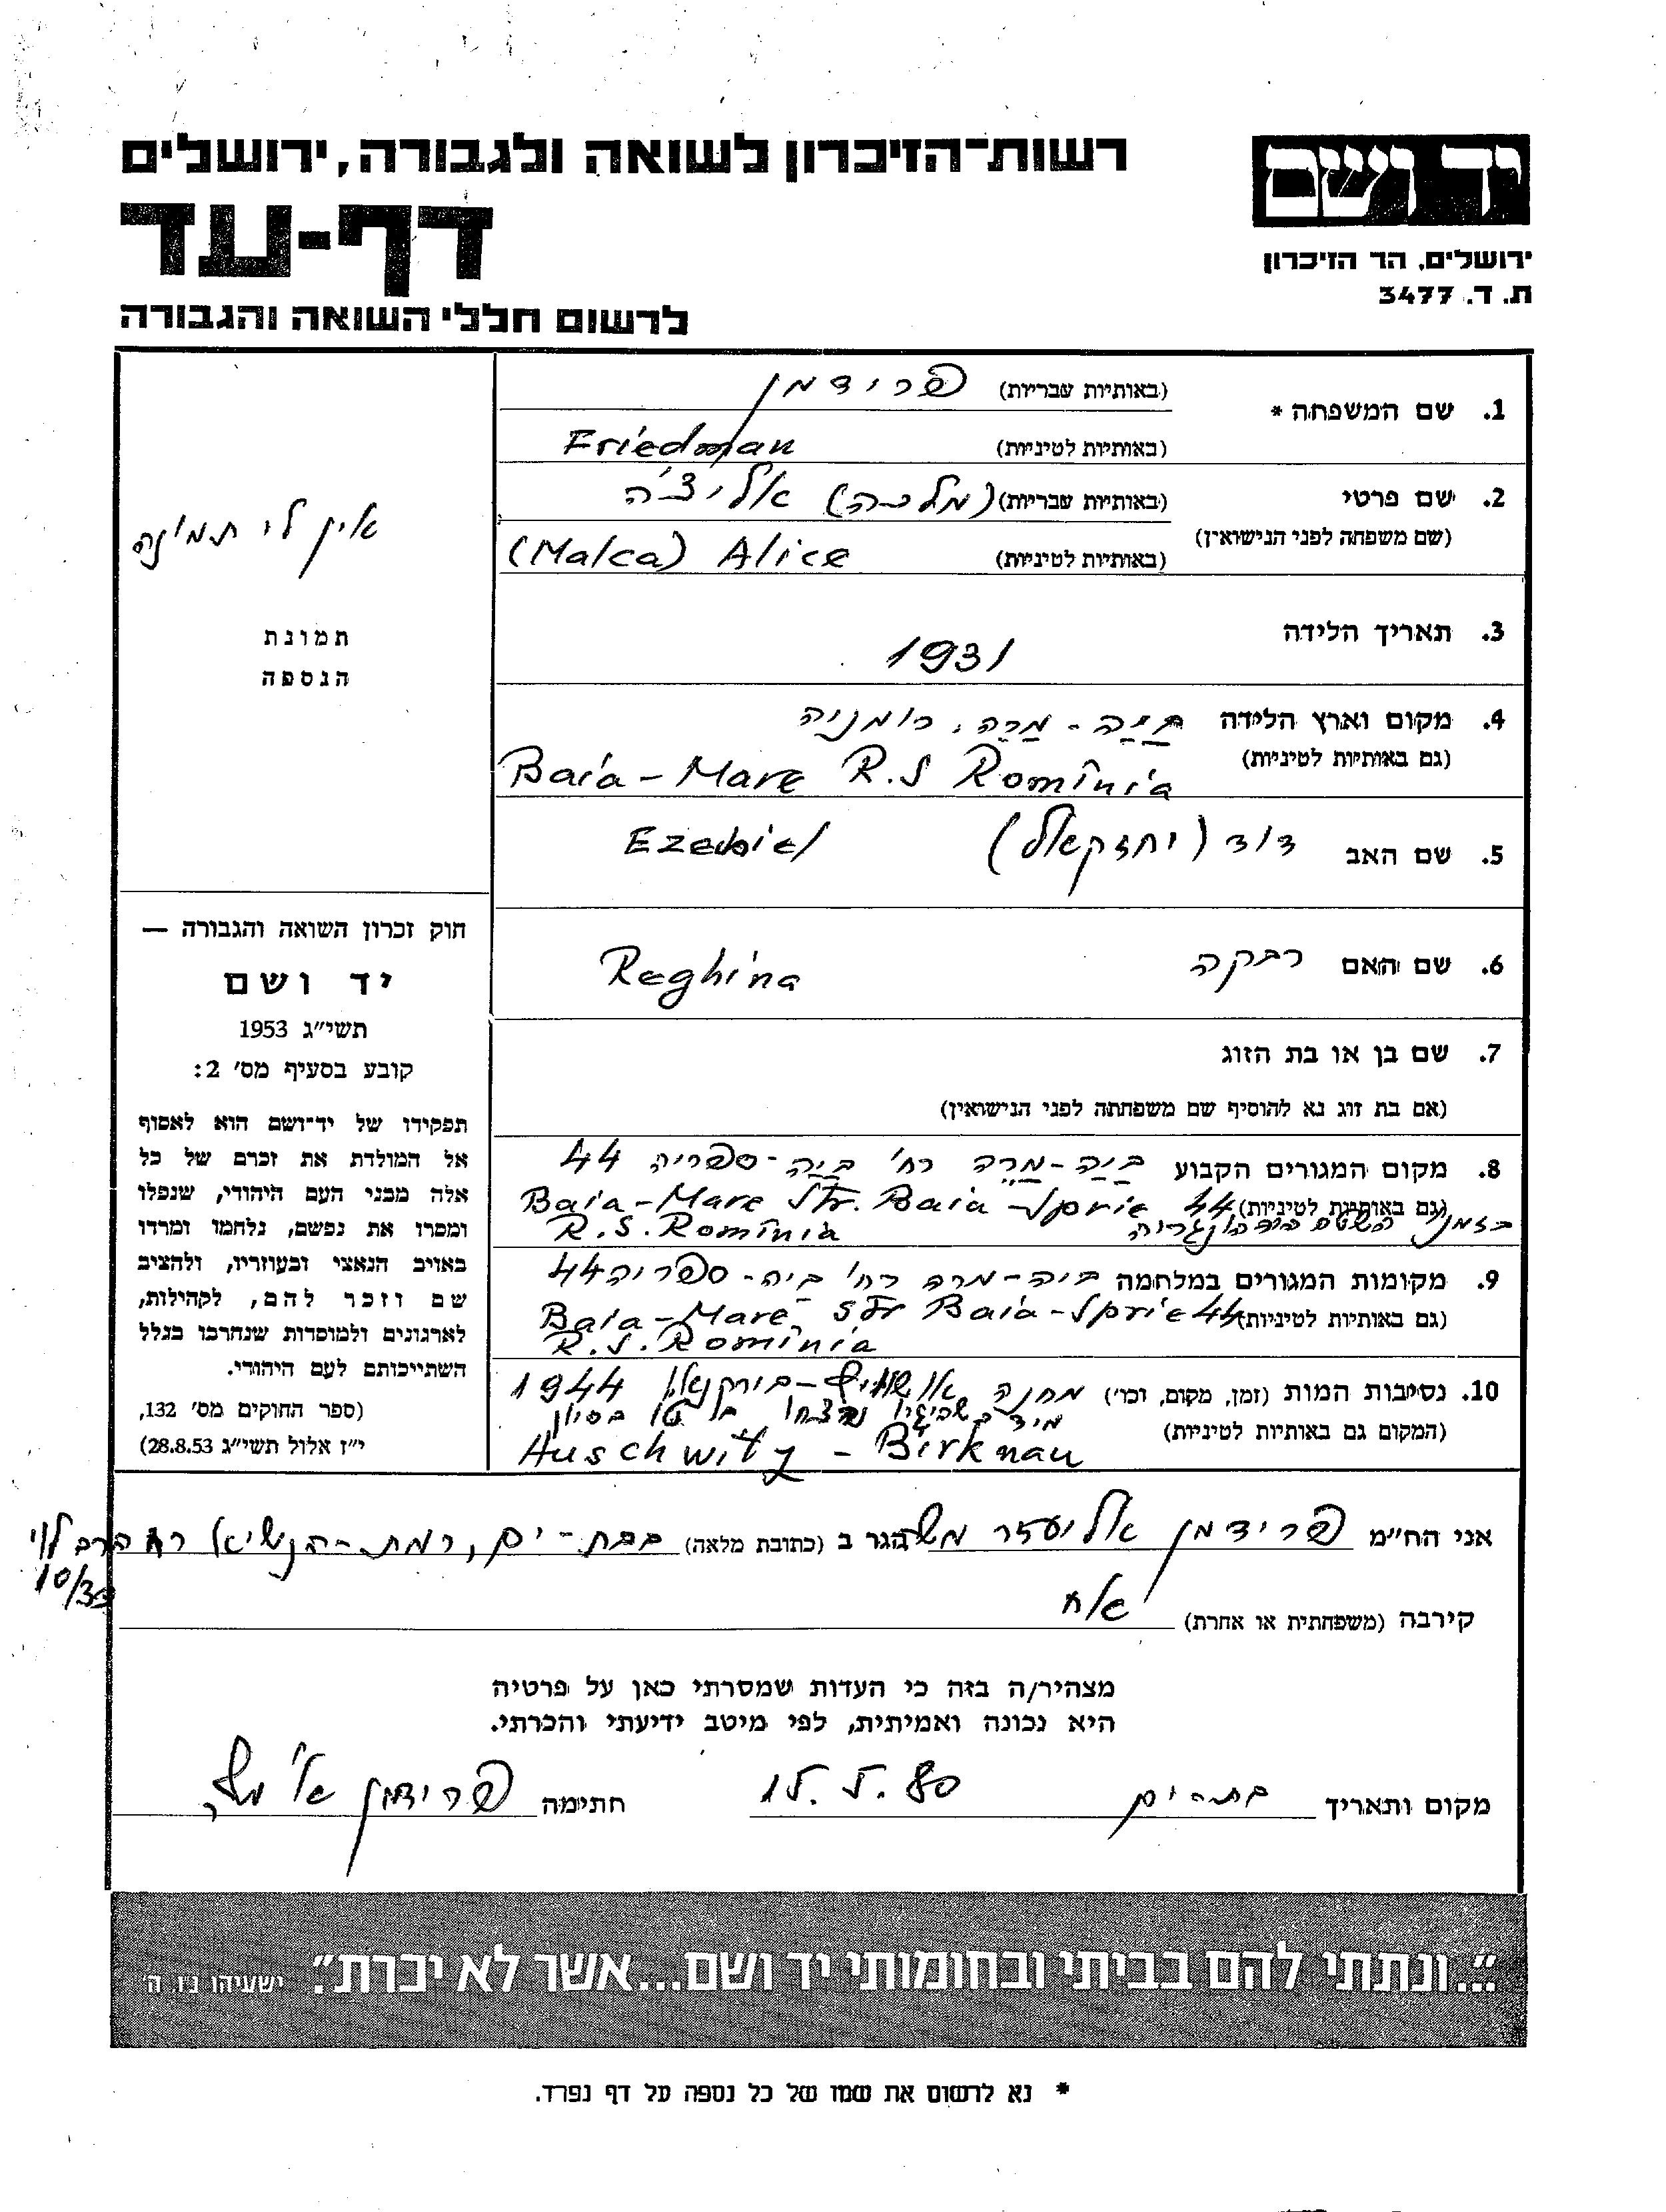 רשות־הזיכרון לשואה ולגבורה, ירושלים
יד ושם
דף-עד
ירושלים, הר הזיכרון
ת. ד. 3477
לרשום חללי השואה והגבורה
1. שם המשפחה * (באותיות עבריות) פרידמן
(באותיות לטיניות) Friedman
2. שם פרטי (באותיות עבריות) (מלכה) אליצ'ה
(שם משפחה לפני הנישואין) (באותיות לטיניות) (Malca) Alice
אין לי תמונה
תמונת
הנספה
3. תאריך הלידה 1931
4. מקום וארץ הלידה בַּיַה - מַרֶה, רומניה
(גם באותיות לטיניות) Baia-Mare R.S Romînia
5. שם האב דוד (יחזקאל) Ezekiel
6. שם האם רבקה Reghina
7. שם בן או בת הזוג
(אם בת זוג נא להוסיף שם משפחתה לפני הנישואין)
8. מקום המגורים הקבוע בַּיַה-מַרֶה רח' בַּיַה-ספריה 44
(גם באותיות לטיניות) Baia-Mare Str. Baia-Sprie 44
R.S. Romînia בזמני השטח היה הונגריה
9. מקומות המגורים במלחמה ביה-מרה רח' ביה-ספריה 44
(גם באותיות לטיניות) Baia-Mare str Baia-Sprie 44
R.S. Romînia
10. נסיבות המות (זמן, מקום, וכו') מחנה אושוויץ-בירקנאו 1944
מיד בסיון
(המקום גם באותיות לטיניות) Auschwitz - Birknau
חוק זכרון השואה והגבורה —
יד ושם
תשי״ג 1953
קובע בסעיף מס׳ 2:
תפקידו של יד־ושם הוא לאסוף
אל המולדת את זכרם של כל
אלה מבני העם היהודי, שנפלו
ומסרו את נפשם, נלחמו ומרדו
באויב הנאצי ובעוזריו, ולהציב
שם וזכר להם, לקהילות,
לארגונים ולמוסדות שנחרבו בגלל
השתייכותם לעם היהודי.
(ספר החוקים מס׳ 132,
י״ז אלול תשי״ג 28.8.53)
אני הח״מ פרידמן אליעזר משה הגר ב (כתובת מלאה) בבת-ים, רמת-הנשיא רח הרב לוי
10/33
קירבה (משפחתית או אחרת) אח
מצהיר/ה בזה כי העדות שמסרתי כאן על פרטיה
היא נכונה ואמיתית, לפי מיטב ידיעתי והכרתי.
מקום ותאריך בת-ים 15.5.80 חתימה פרידמן א' משה
״...ונתתי להם בביתי ובחומותי יד ושם...אשר לא יכרת״. ישעיהו נ״ו, ה׳
* נא לרשום את שמו של כל נספה על דף נפרד.